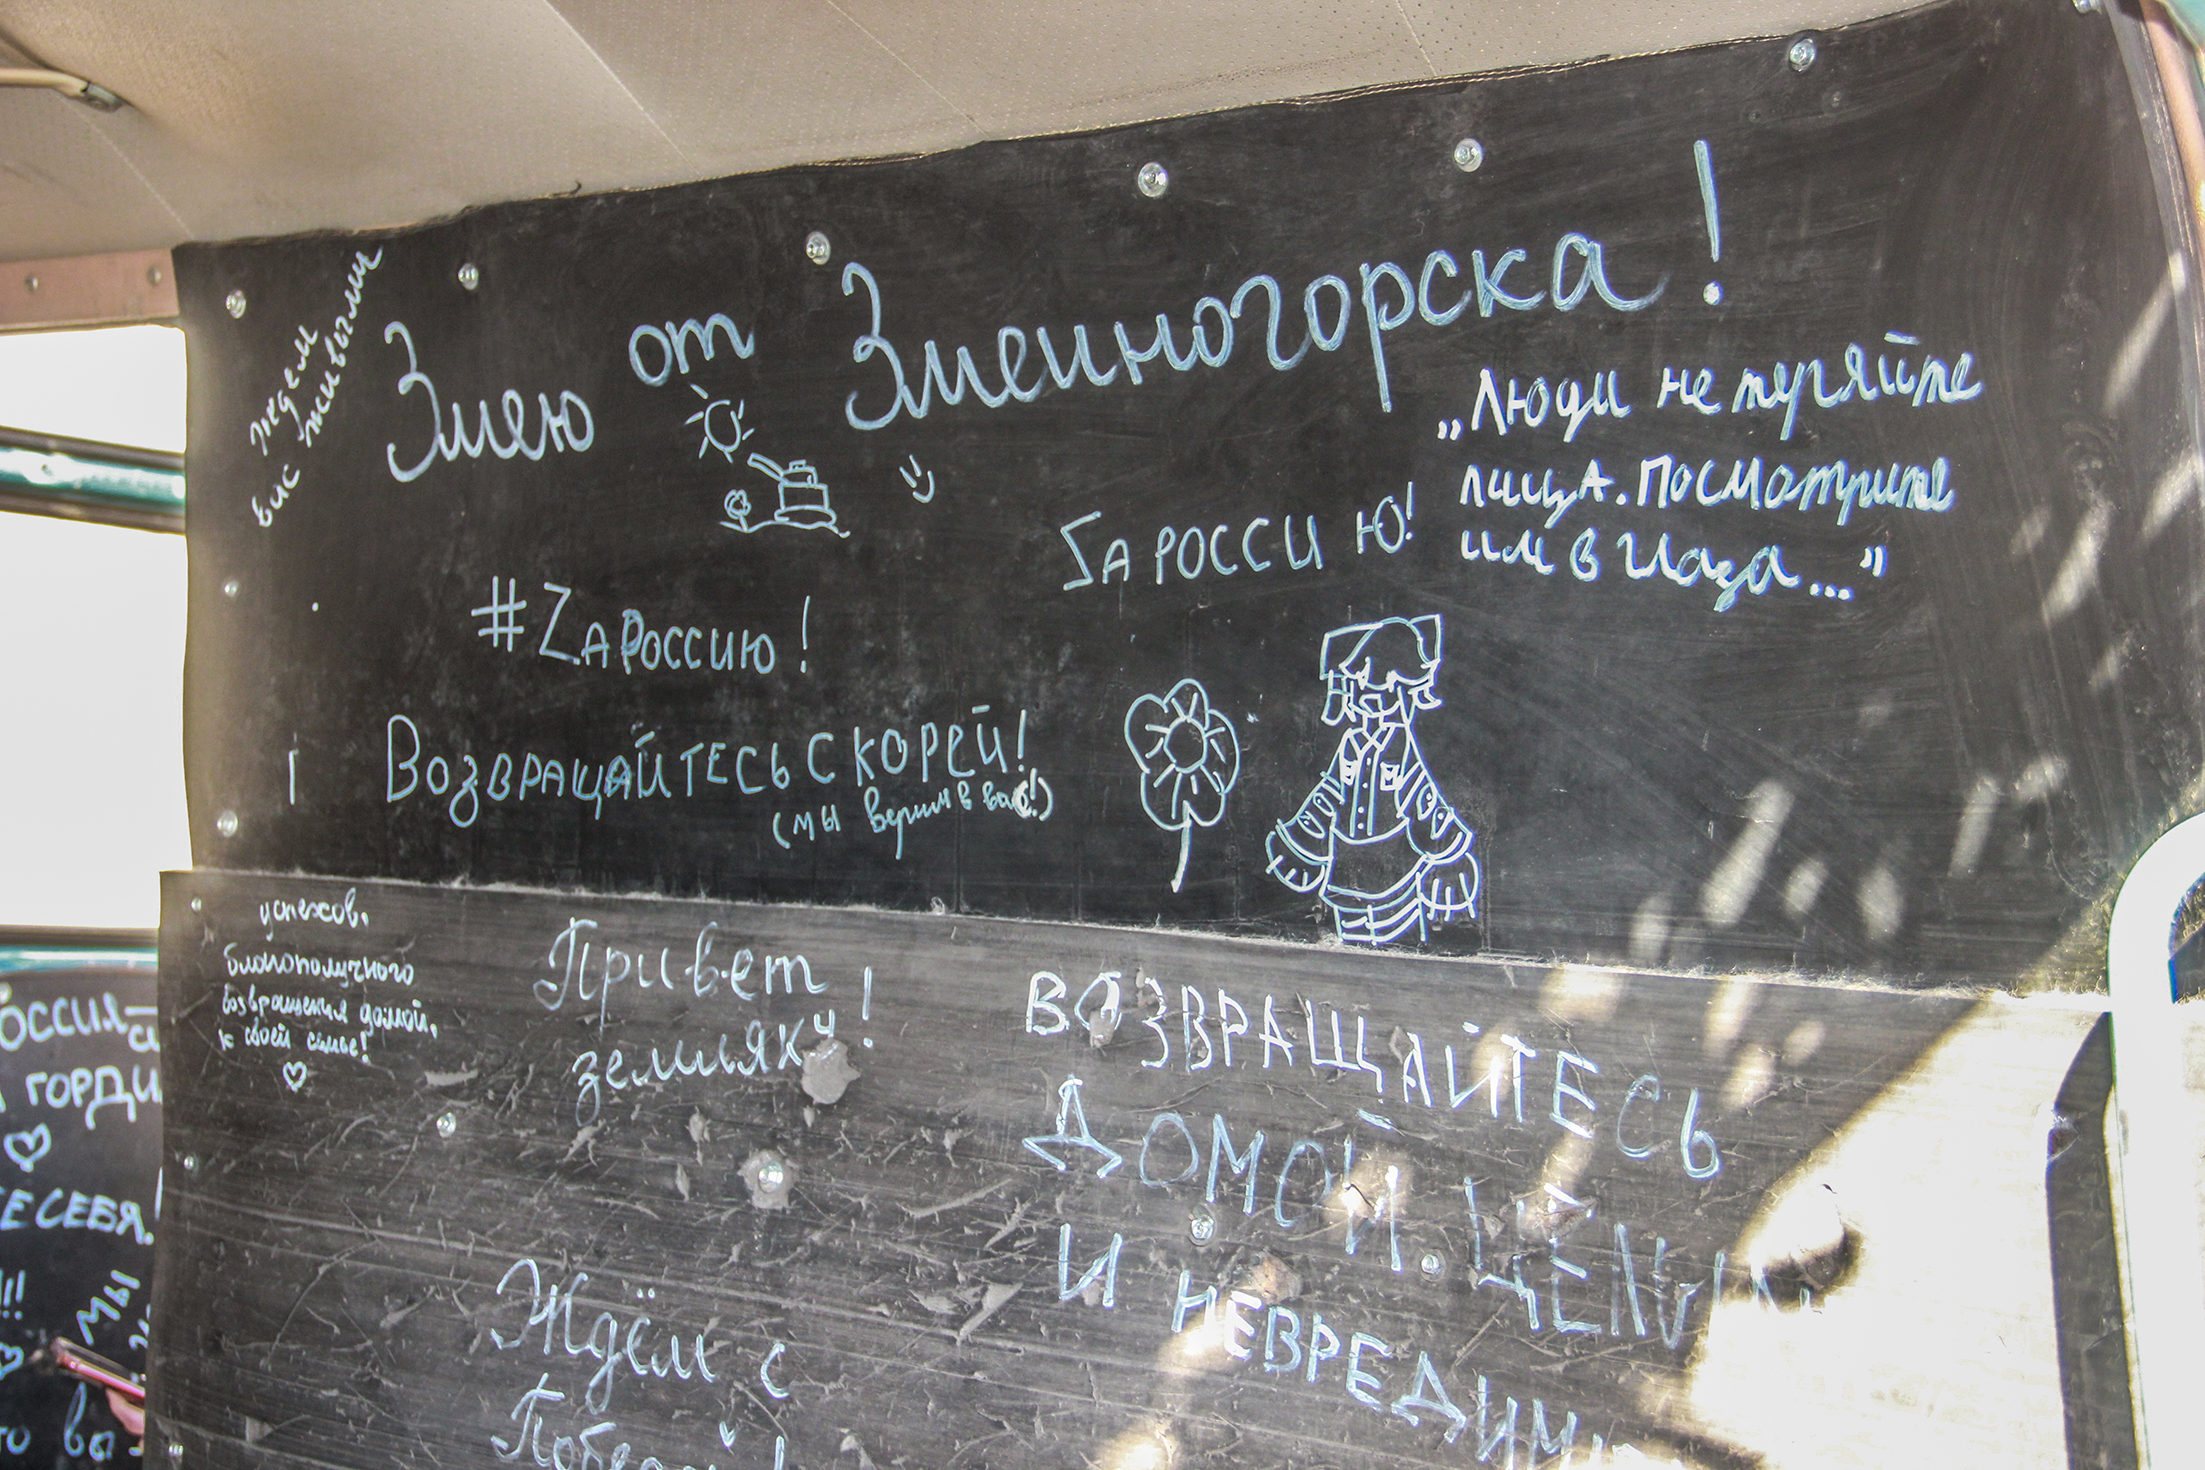 Ждем
вас живыми
Змею от Змеиногорска!
„Люди не теряйте
лица. Посмотрите
им в глаза...”
ZA РОССИЮ!
#ZаРоссию!
Возвращайтесь скорей!
(мы верим в вас!)
успехов,
благополучного
возвращения домой,
к своей семье!
Привет
земляку!
ВОЗВРАЩАЙТЕСЬ
ДОМОЙ. ЦЕЛЫ
И НЕВРЕДИМ
Ждём с
Победой!
ОССИЯ–
ГОРДИ
СЕБЯ.
!!!
мы
вы